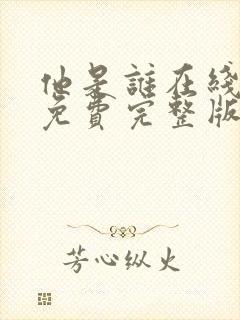 他是誰在綫
免費完整版
芳心纵火